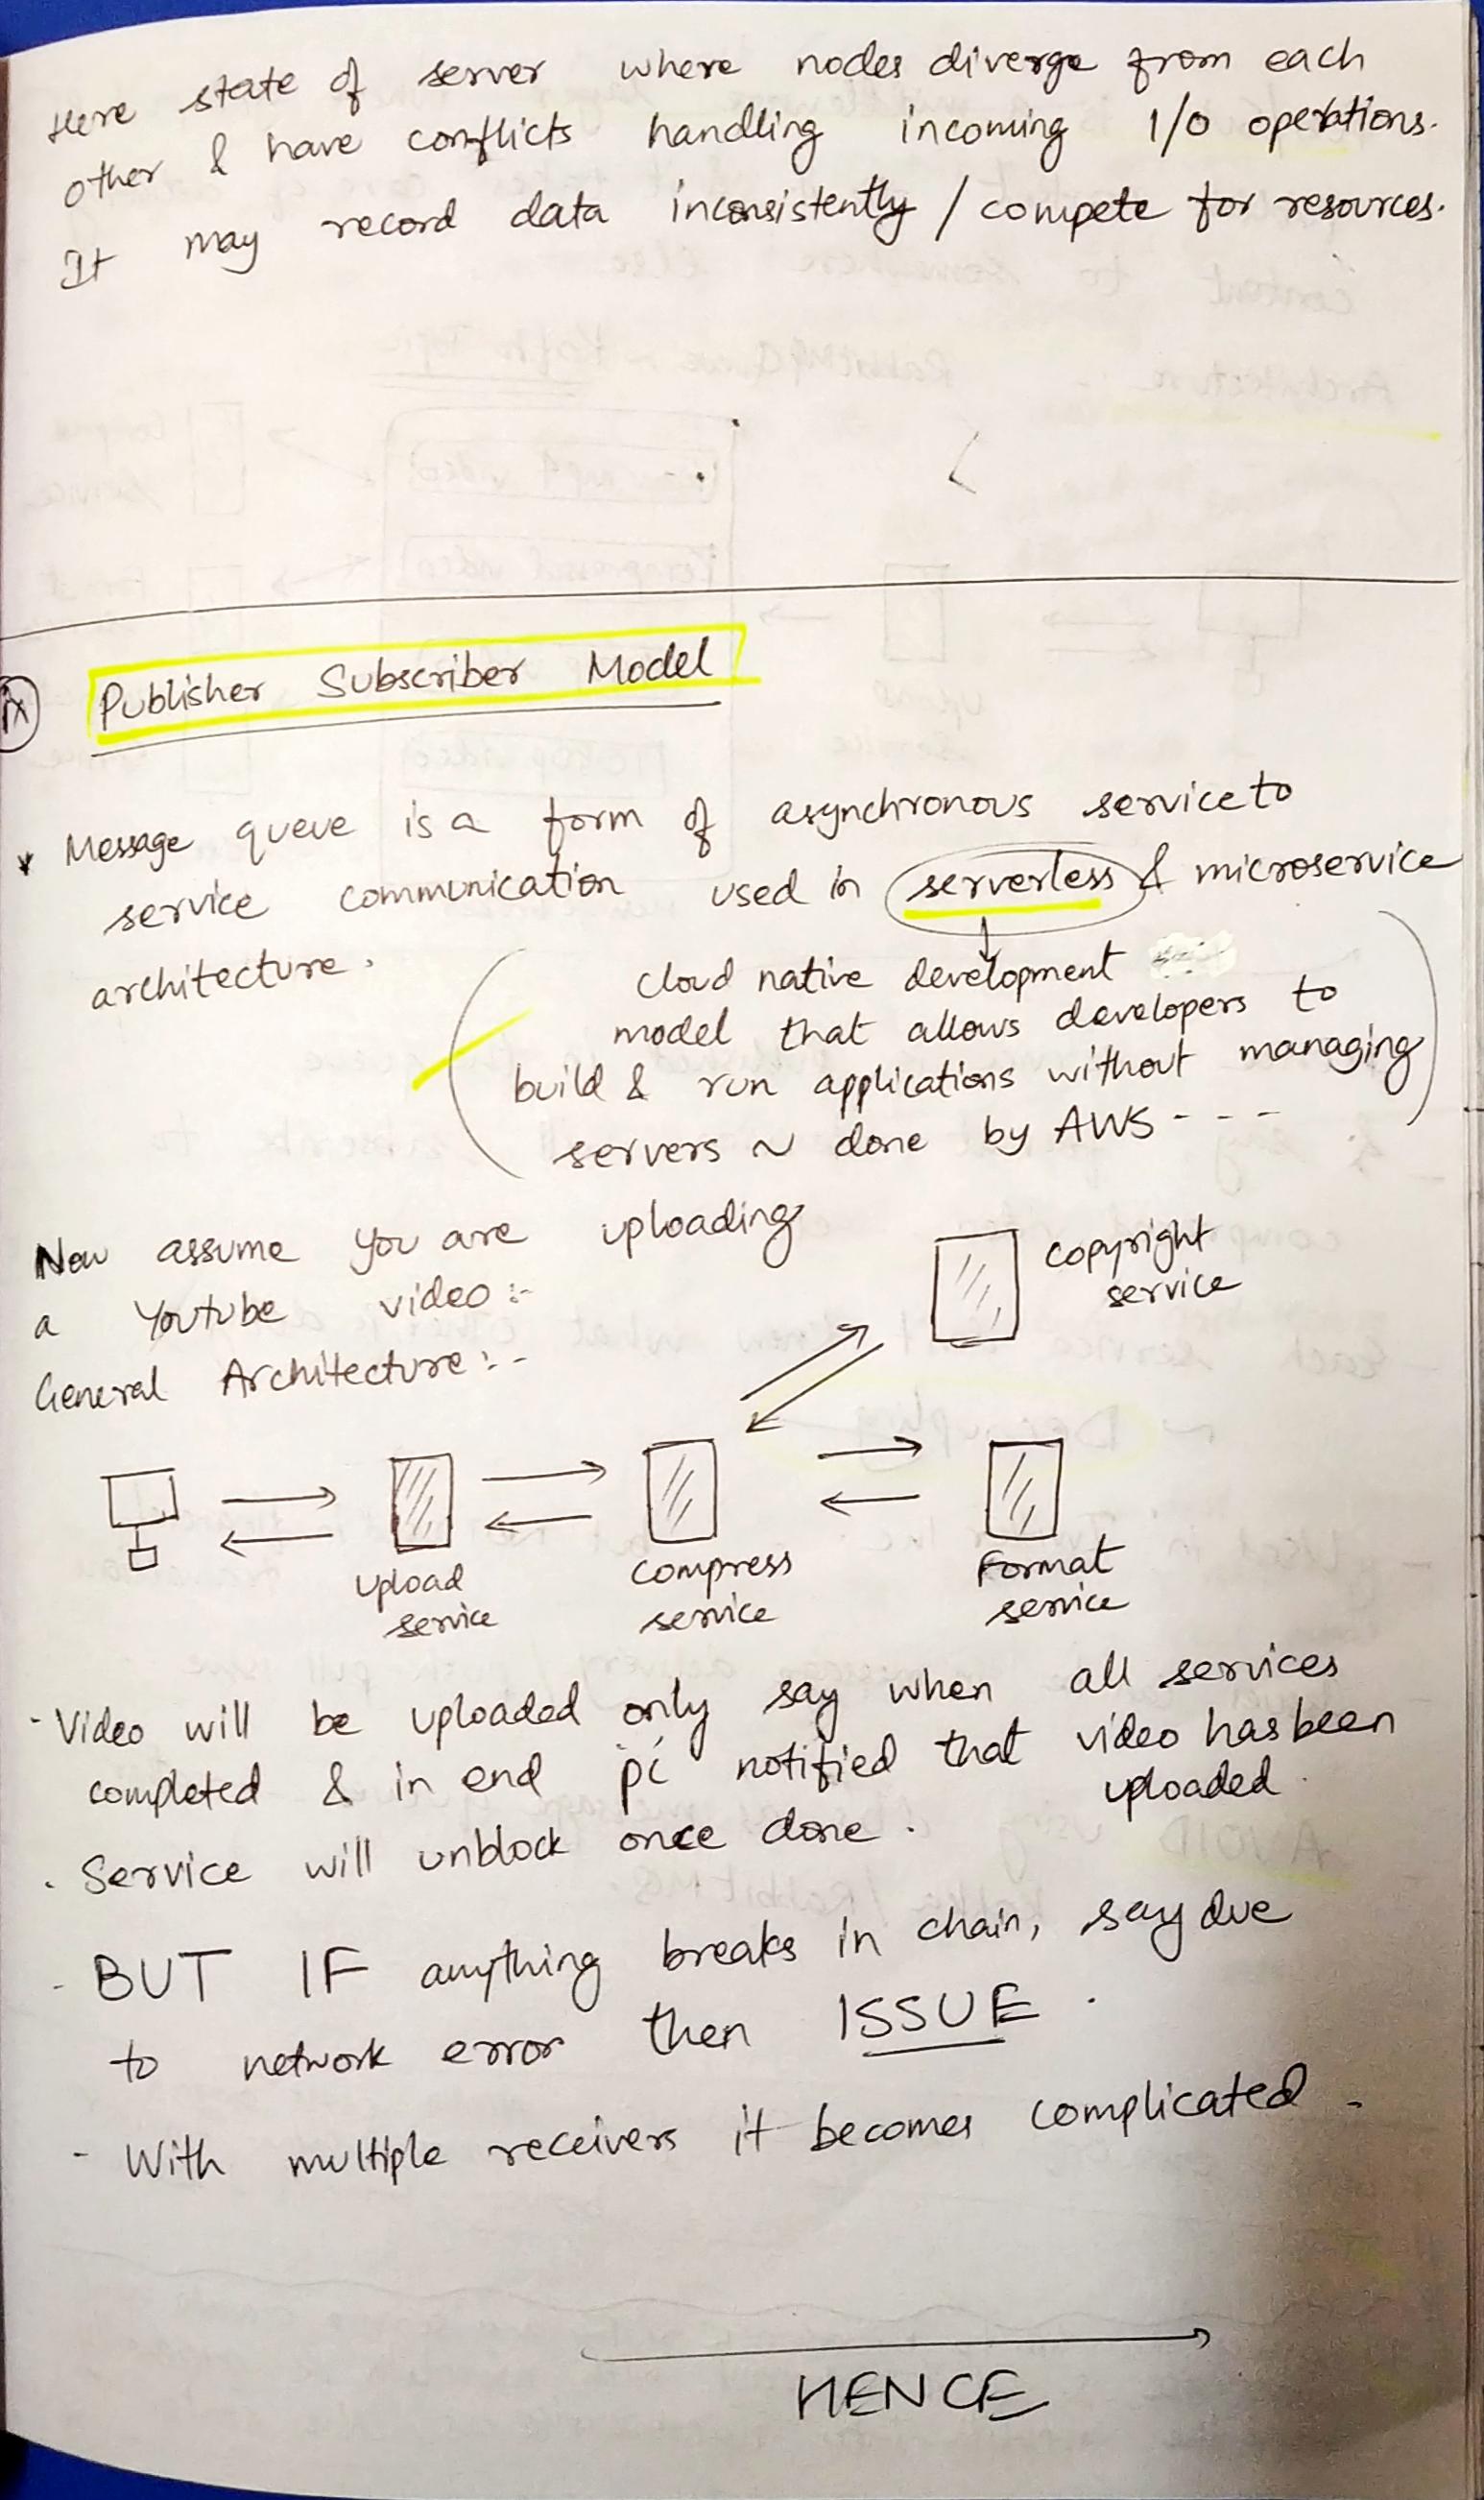 Here state of server where nodes diverge from each
other & have conflicts handling incoming I/O operations.
It may record data inconsistently / compete for resources.
ix
Publisher Subscriber Model
* Message queue is a form of asynchronous service to
service communication used in serverless & microservice
architecture.
cloud native development
model that allows developers to
build & run applications without managing
servers ~ done by AWS - - - -
Now assume you are uploading
a Youtube video :-
General Architecture :-
copyright
service
Upload
service
compress
service
Format
service
- Video will be uploaded only say when all services
completed & in end pc notified that video has been
uploaded.
. Service will unblock once done .
- BUT IF anything breaks in chain, say due
to network error then ISSUE .
- With multiple receivers it becomes complicated .
HENCE